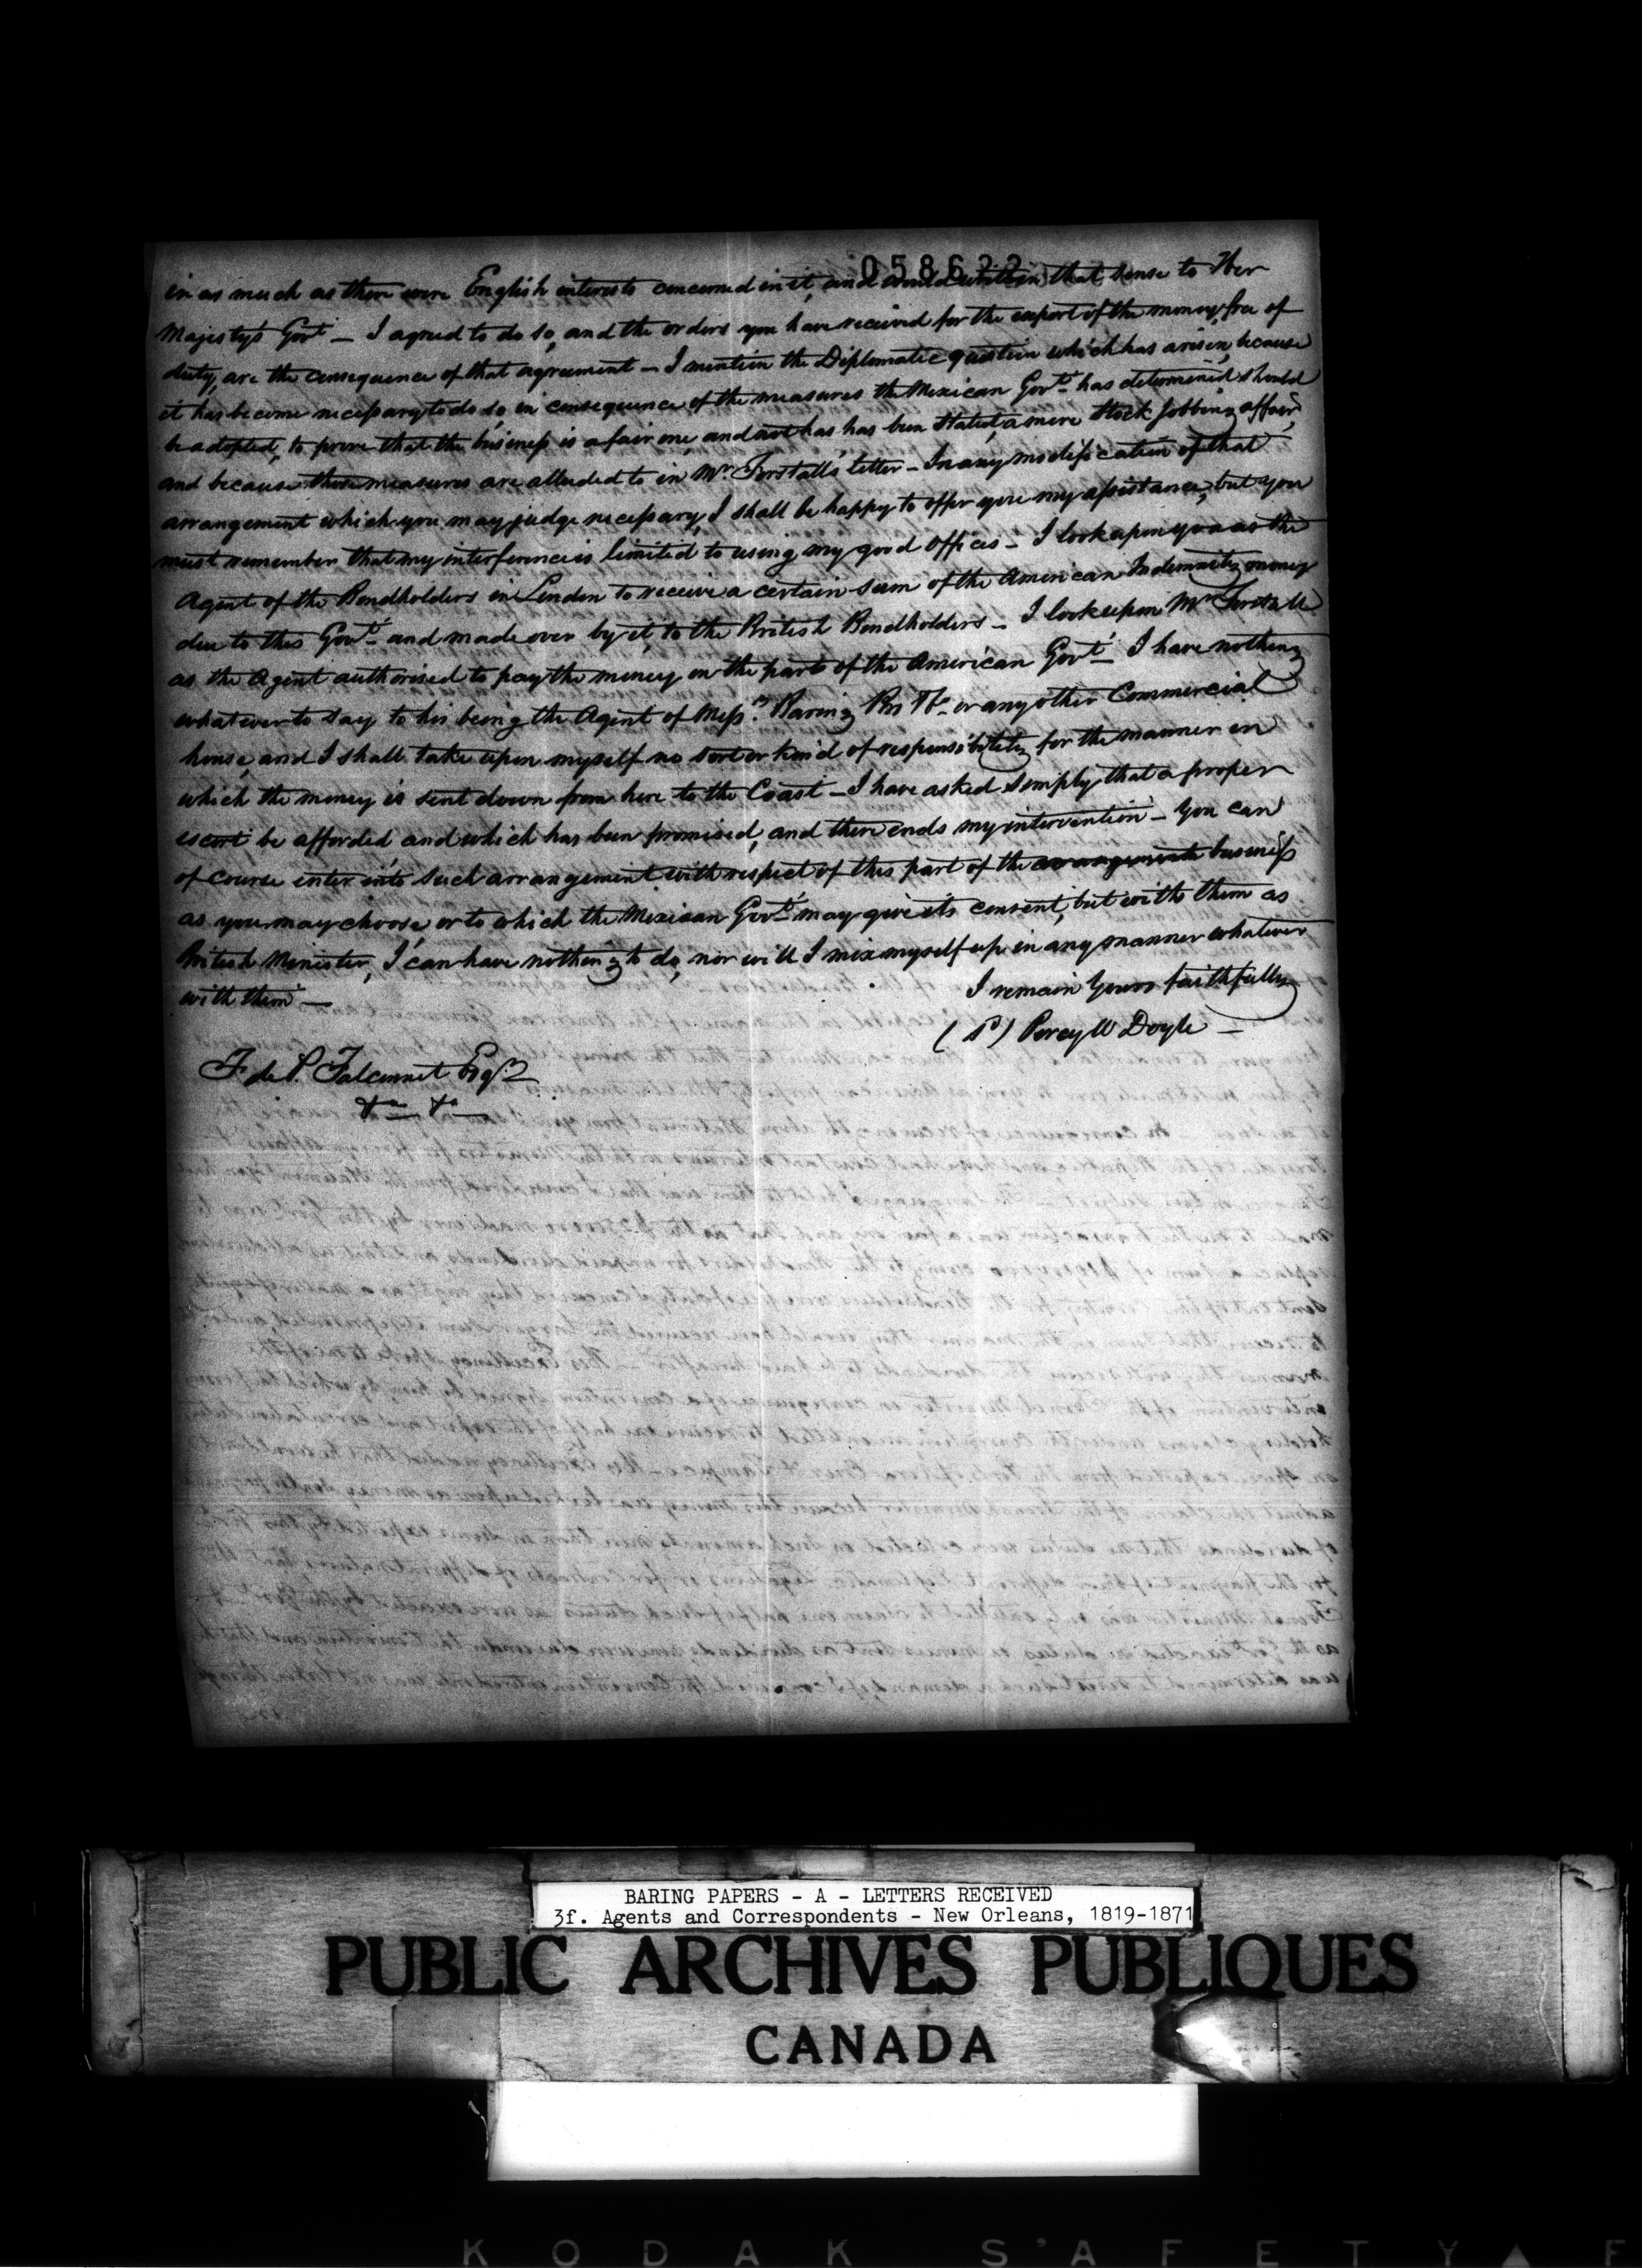 058622
in as much as there were English interests concerned in it, and would write in that sense to Her
Majesty's Govt — I agreed to do so, and the orders you have received for the export of the money free of
duty, are the consequence of that agreement — I mention the Diplomatic question which has arisen, because
it has become necessary to do so, in consequence of the measures the Mexican Govt has determined should
be adopted, to prove that the business is a fair one, and not has has been stated, a mere stock jobbing affair,
and because those measures are alluded to in Mr. Forstall's letter — In any modification of that
arrangement which you may judge necessary, I shall be happy to offer you my assistance, but you
must remember that my interference is limited to using my good offices — I look upon you as the
Agent of the Bondholders in London to receive a certain sum of the American Indemnity money
due to this Govt and made over by it, to the British Bondholders — I look upon Mr Forstall
as the Agent authorised to pay the money on the part of the American Govt — I have nothing
whatever to say to his being the Agent of Messrs. Baring Bros & Co or any other Commercial
house, and I shall take upon myself no sort or kind of responsibility for the manner in
which the money is sent down from here to the Coast — I have asked simply that a proper
escort be afforded and which has been promised, and there ends my intervention — You can
of course enter into such arrangement with respect of this part of the arrangements business
as you may choose, or to which the Mexican Govt may give its consent, but with them as
British Minister, I can have nothing to do, nor will I mix myself up in any manner whatever
with them —
I remain Yours faithfully
(S) Percy W Doyle —
F. de P. Falconnet Esqr
&a &a
BARING PAPERS - A - LETTERS RECEIVED
3f. Agents and Correspondents - New Orleans, 1819-1871
PUBLIC ARCHIVES PUBLIQUES
CANADA
KODAK S'AFETY F